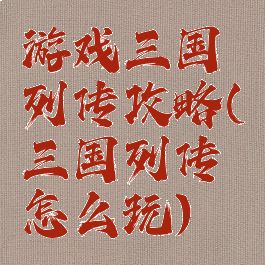 游戏三国
列传攻略(
三国列传
怎么玩)